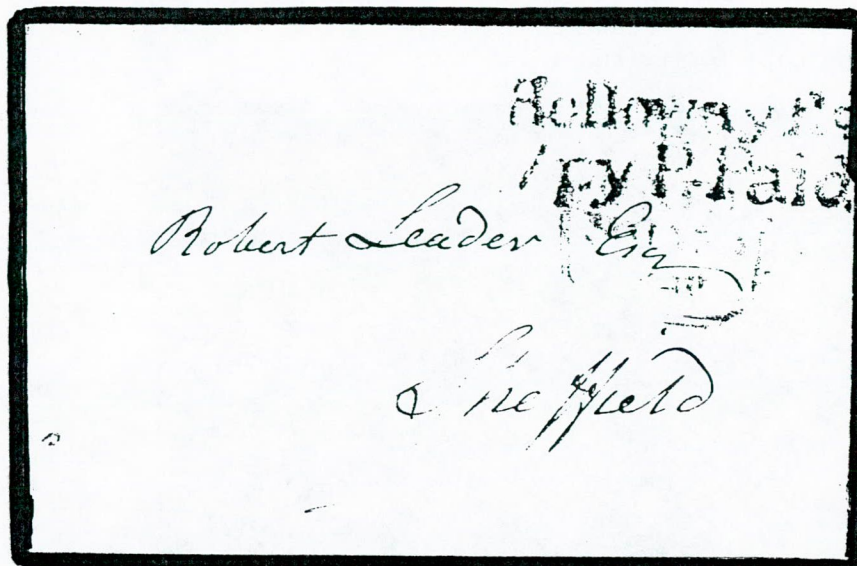 Holloway Rd
1py P.Paid
Robert Leader Esq
Sheffield